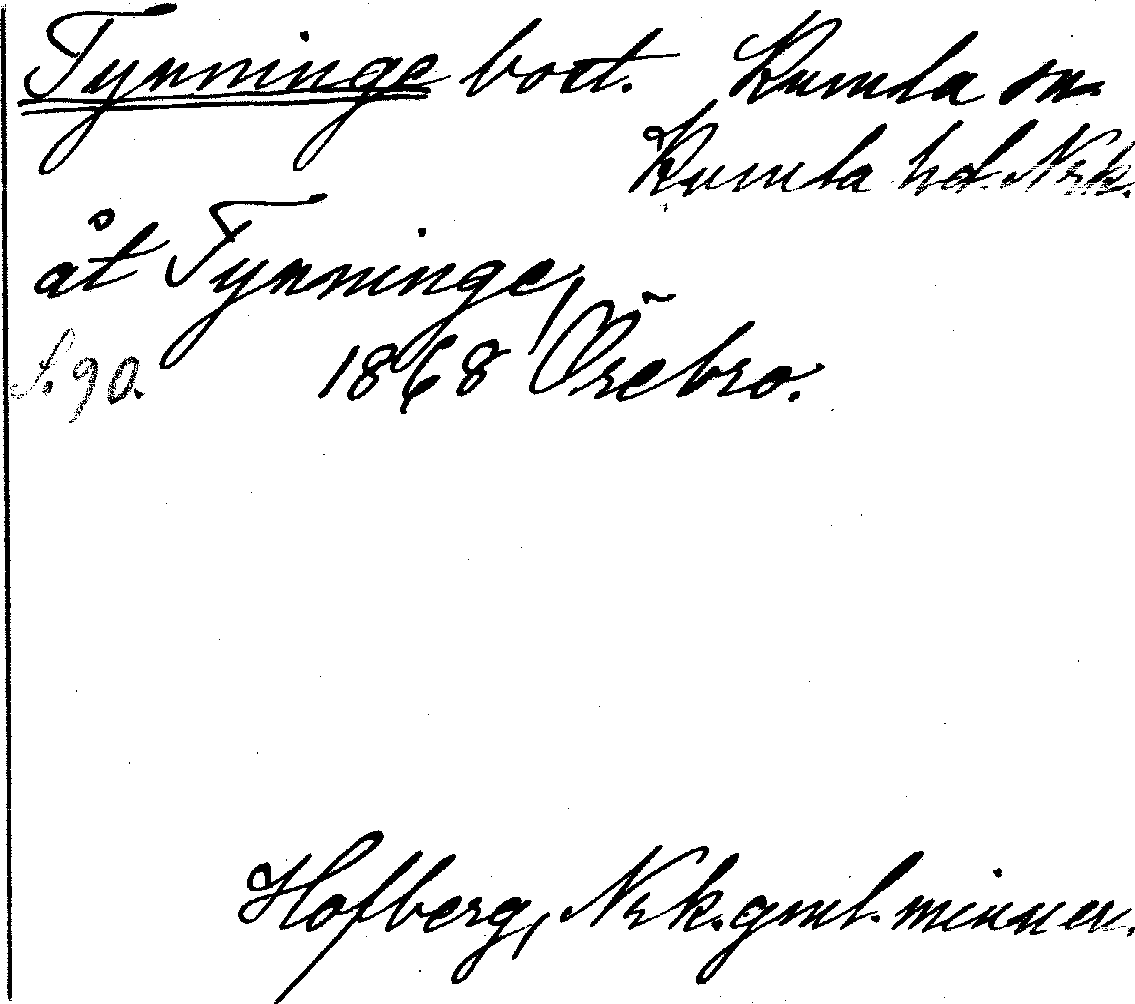 Tynninge bort. Kumla sn.
Kumla hd. Nrk.
åt Tynninge,
S. 90. 1868 Örebro.
Hofberg, Nrk. gml. minnen.